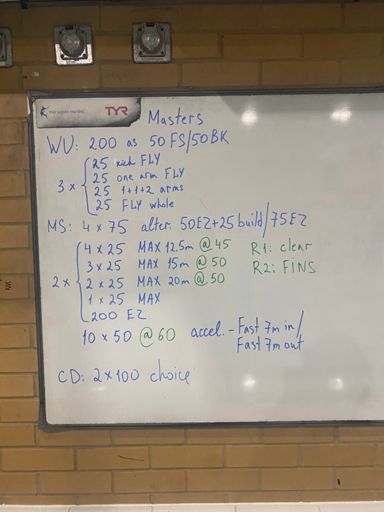 TYR
Masters
WU: 200 as 50 FS/50BK
3 x
25 kick FLY
25 one arm FLY
25 1+1+2 arms
25 FLY whole
MS: 4 x 75 alter. 50EZ+25 build/75EZ
2 x
4 x 25 MAX 12.5m @ 45 R1: clear
3 x 25 MAX 15m @ 50 R2: FINS
2 x 25 MAX 20m @ 50
1 x 25 MAX
200 EZ
10 x 50 @ 60 accel. - Fast 7m in/
Fast 7m out
CD: 2 x 100 choice